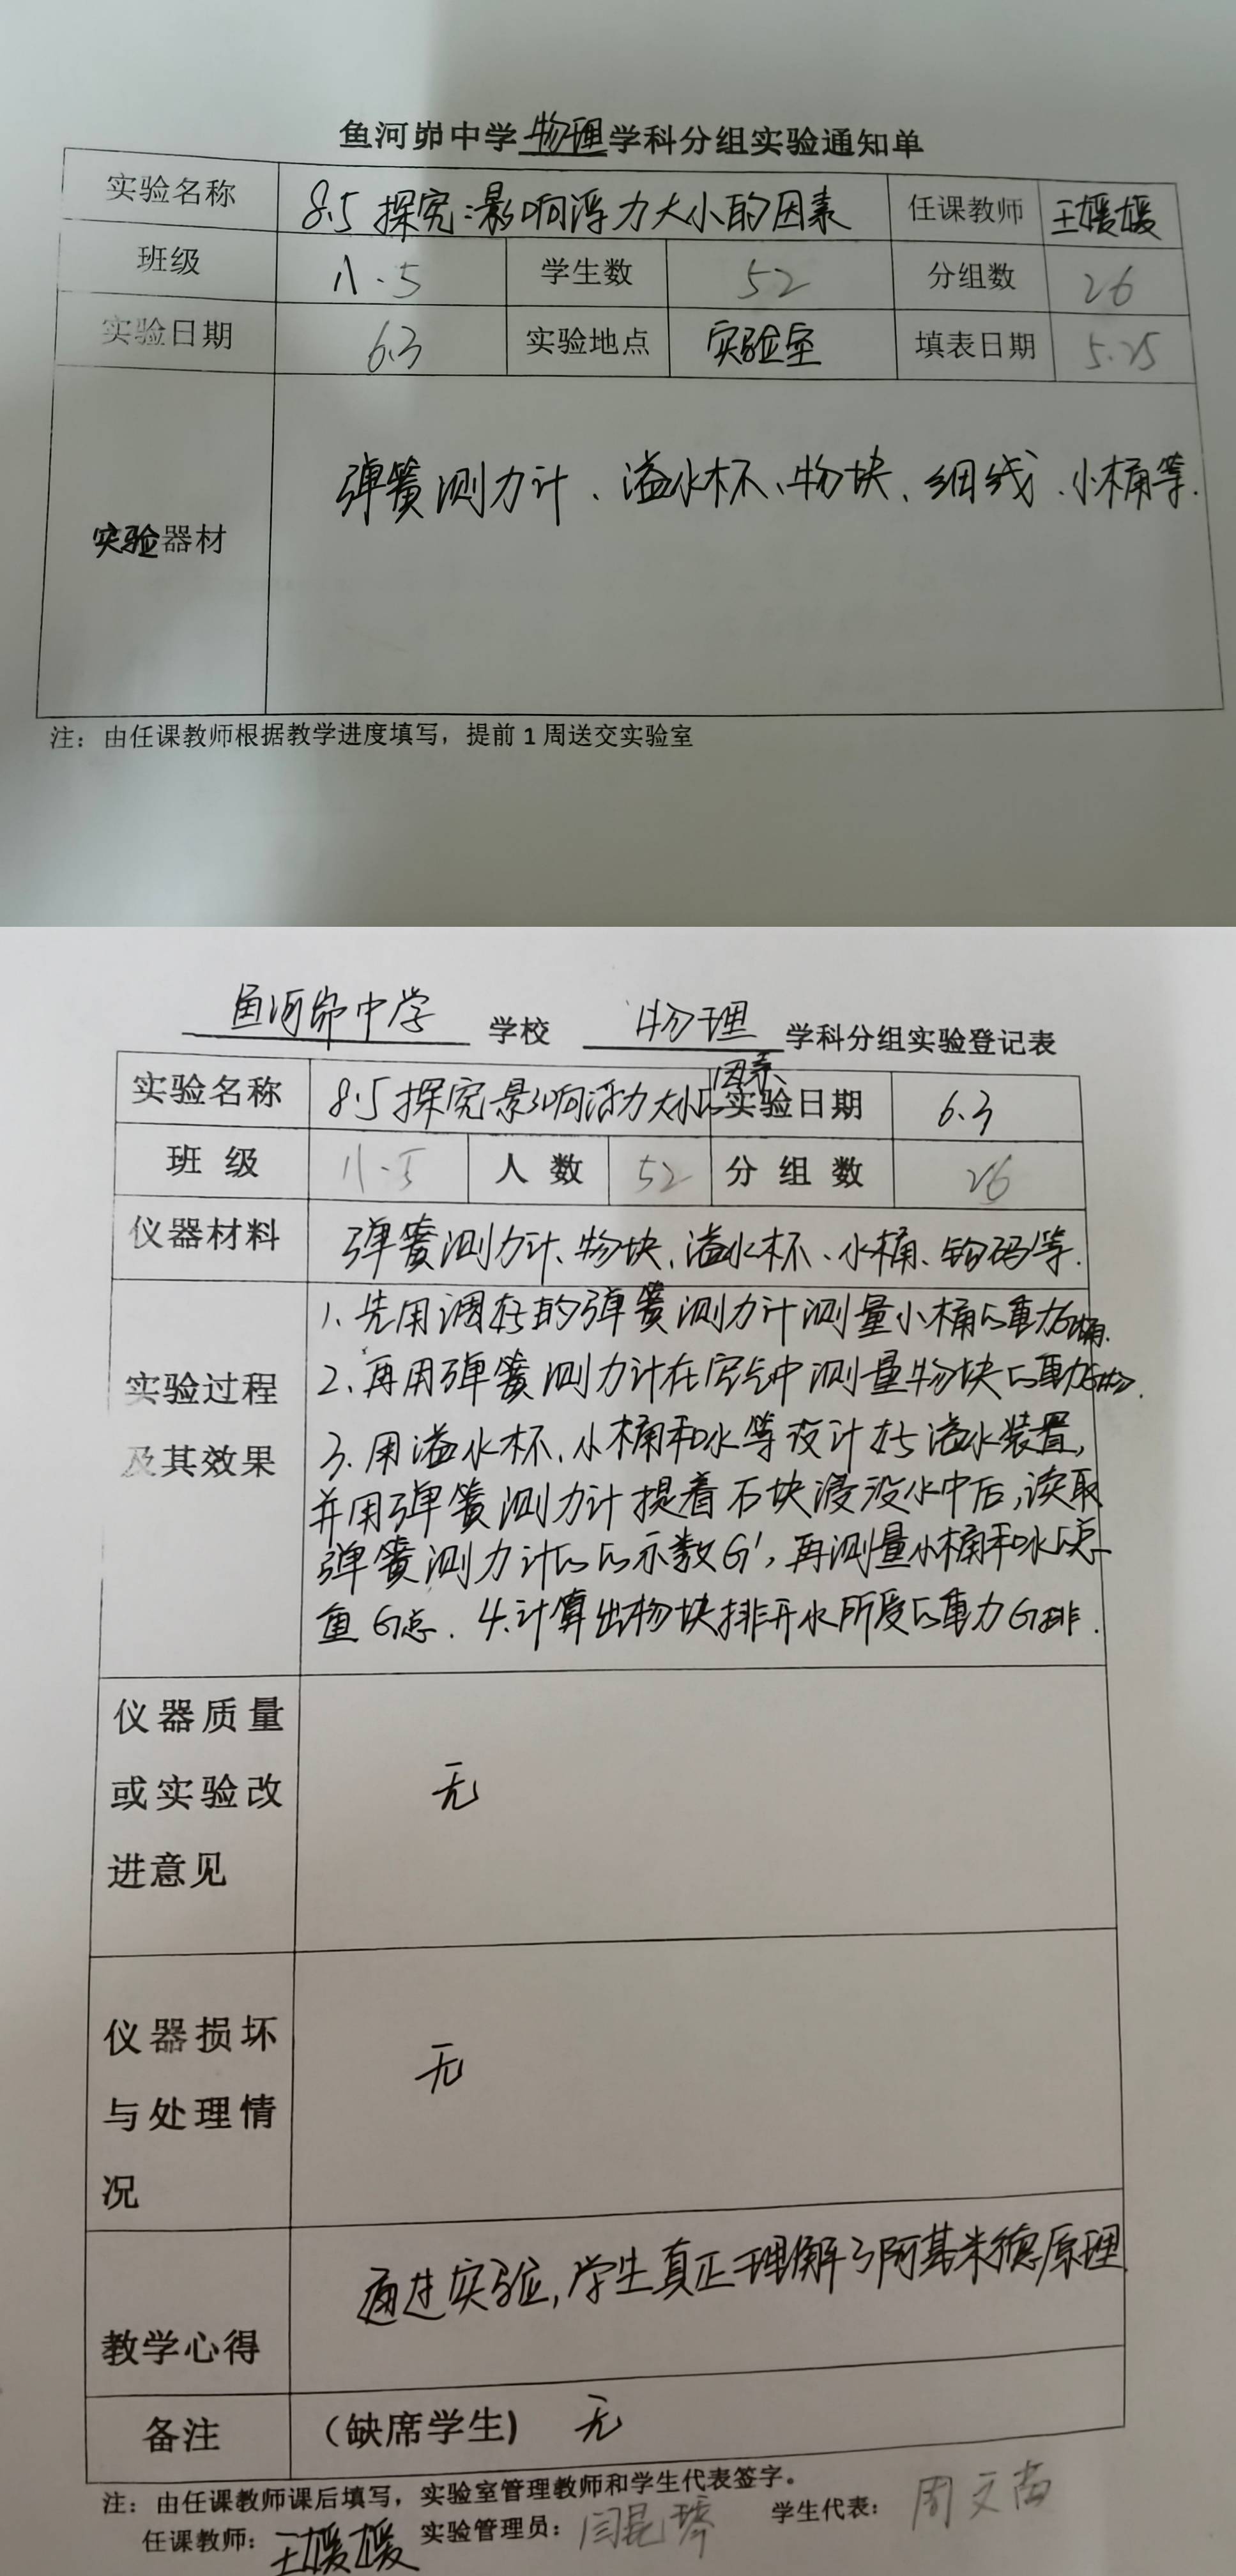 鱼河峁中学物理学科分组实验通知单
实验名称 8.5 探究:影响浮力大小的因素 任课教师 王媛媛
班级 八.5 学生数 52 分组数 26
实验日期 6.3 实验地点 实验室 填表日期 5.25
实验器材 弹簧测力计、溢水杯、物块、细线、小桶等.
注：由任课教师根据教学进度填写，提前 1 周送交实验室
鱼河峁中学 学校 物理 学科分组实验登记表
实验名称 8.5 探究影响浮力大小的因素 实验日期 6.3
班 级 八.5 人 数 52 分 组 数 26
仪器材料 弹簧测力计、物块、溢水杯、小桶、钩码等.
实验过程
及其效果
1、先用调好的弹簧测力计测量小桶的重力G桶.
2、再用弹簧测力计在空气中测量物块的重力G物.
3、用溢水杯、小桶和水等设计好溢水装置,
并用弹簧测力计提着石块浸没水中后,读取
弹簧测力计的的示数G',再测量小桶和水的总
重G总. 4.计算出物块排开水所受的重力G排.
仪器质量
或实验改
进意见
无
仪器损坏
与处理情
况
无
教学心得 通过实验,学生真正理解了阿基米德原理
备注 （缺席学生） 无
注：由任课教师课后填写，实验室管理教师和学生代表签字。
任课教师：王媛媛 实验管理员：闫昆琴 学生代表：周文